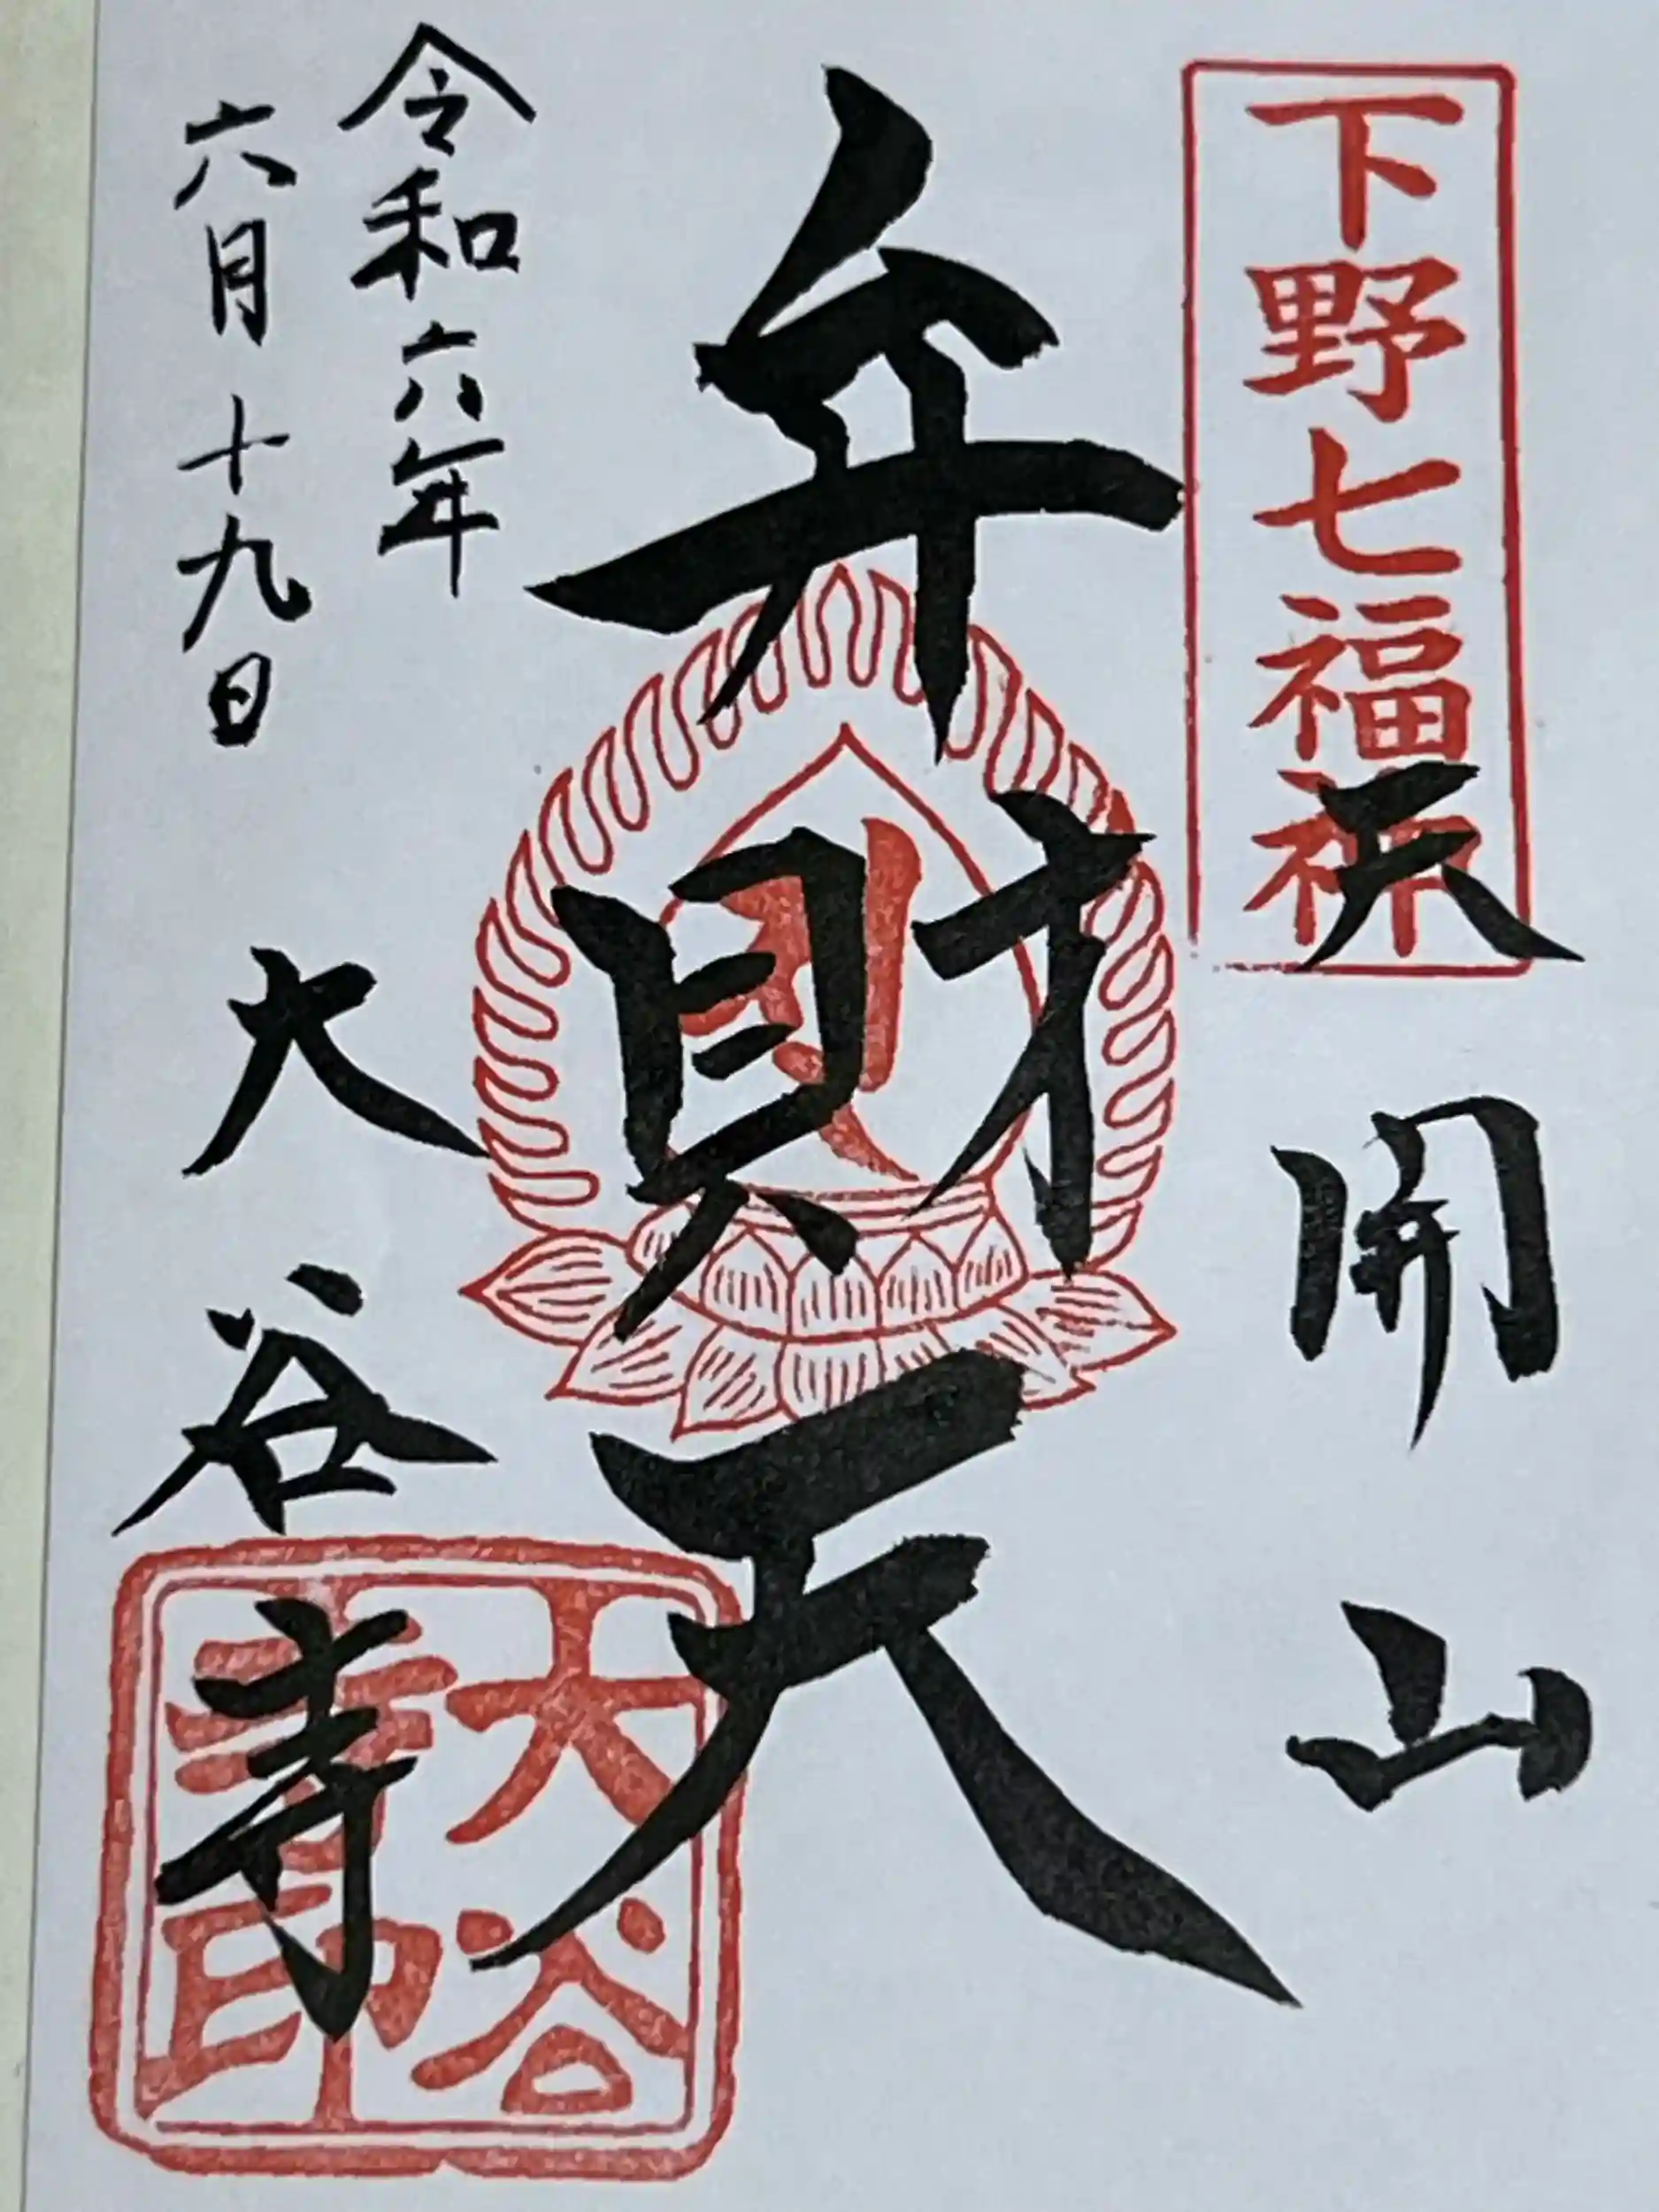 下野七福神
天開山
弁財天
令和六年
六月十九日
大谷寺
大谷寺印